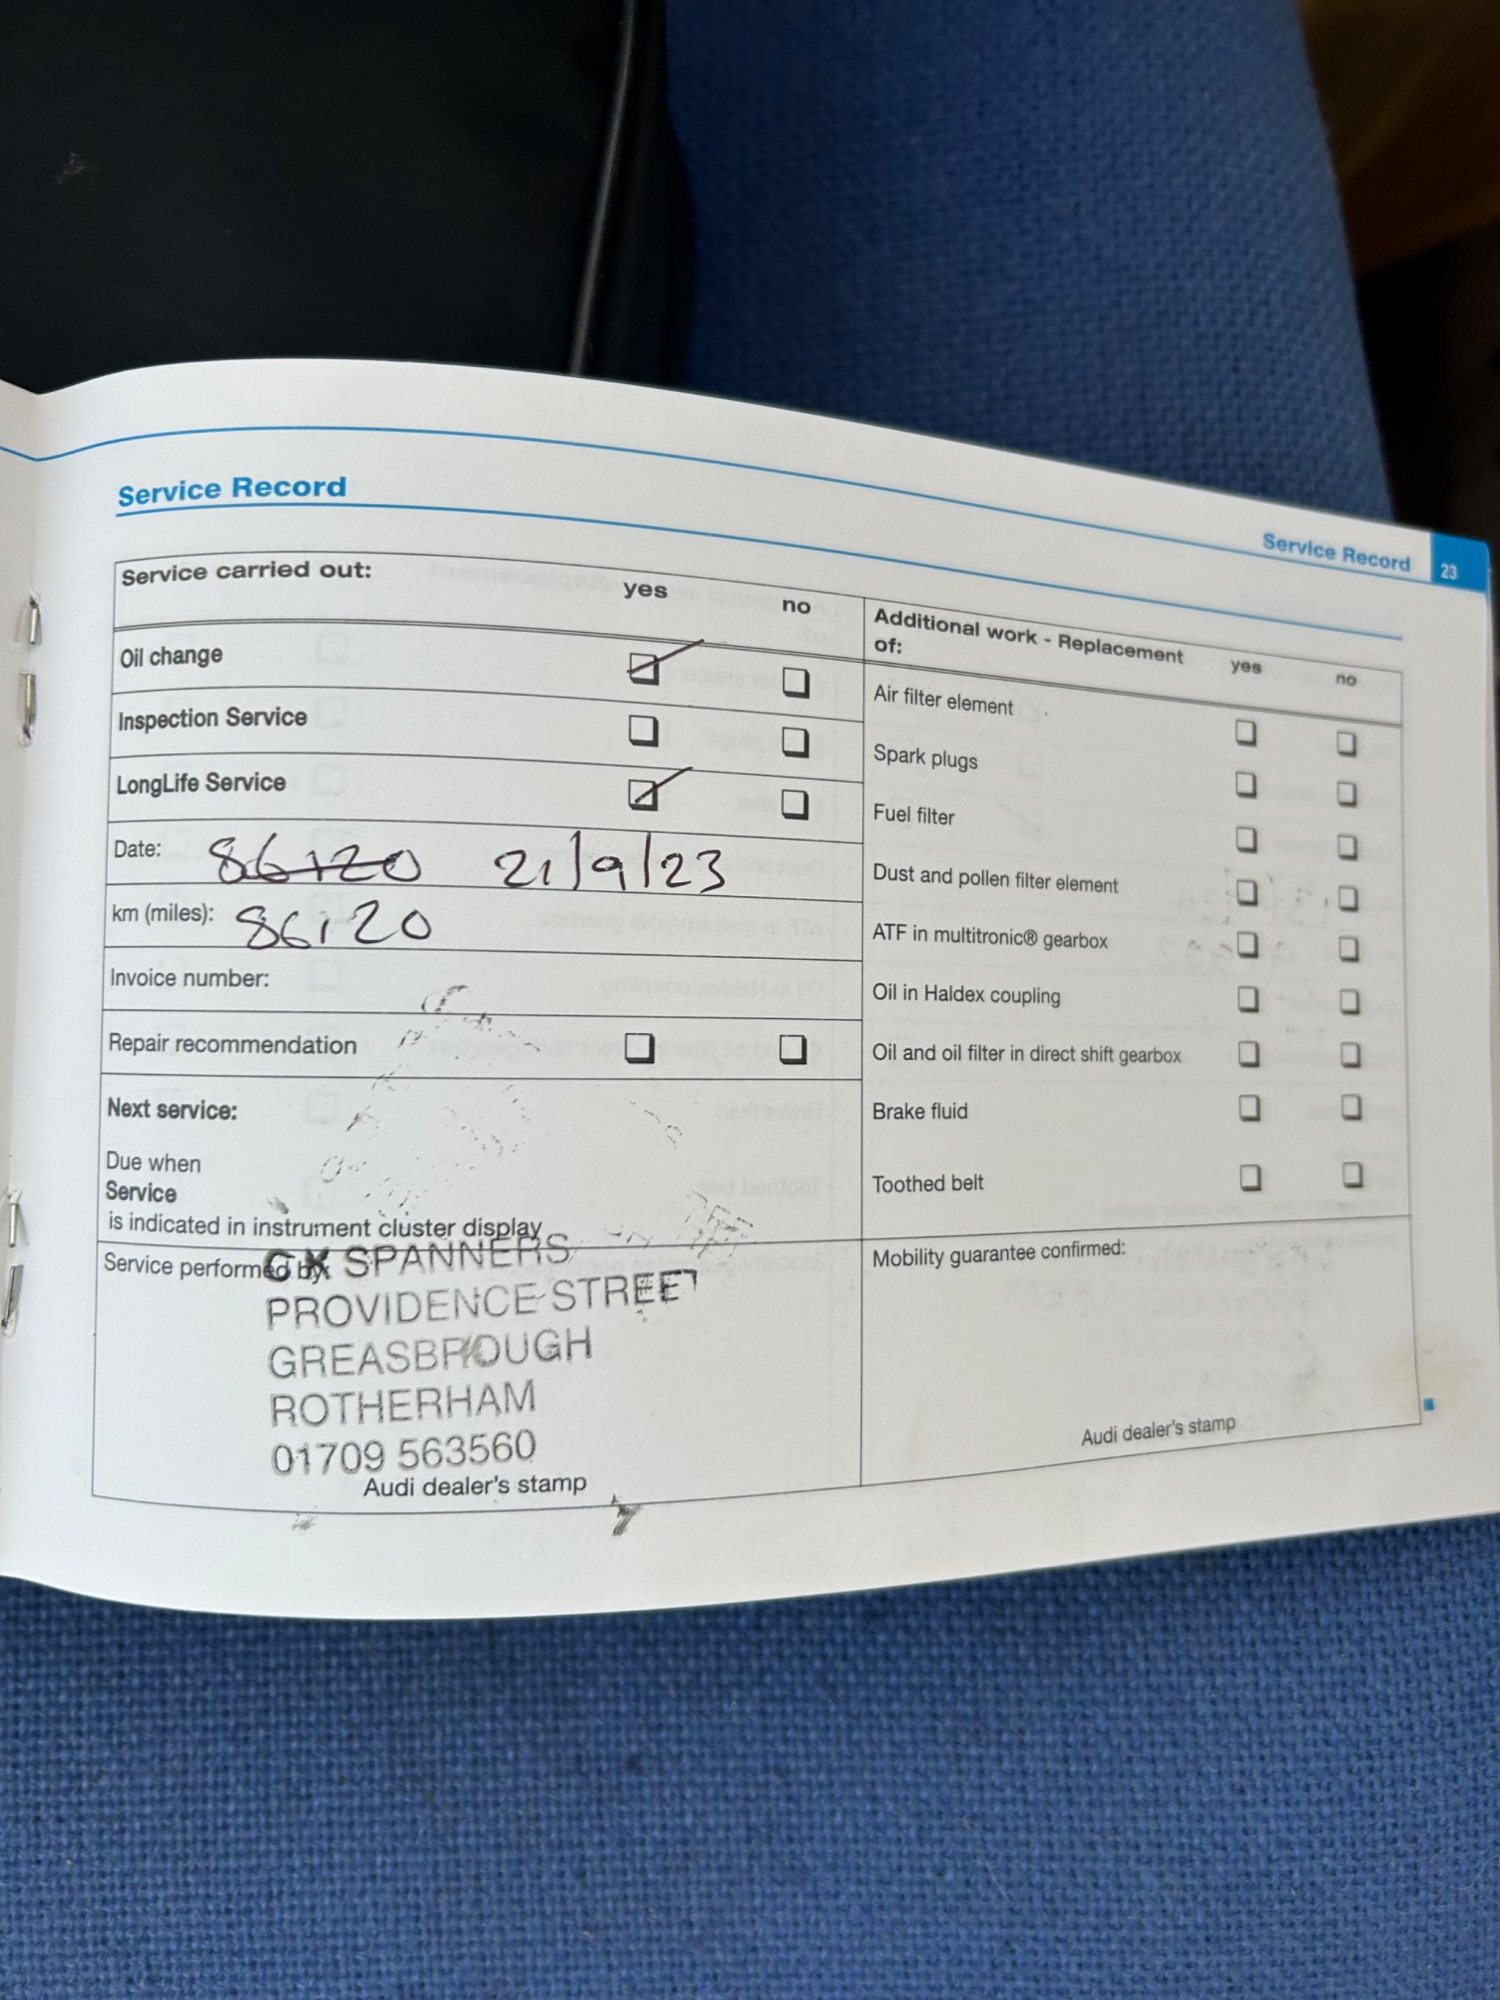 Service Record
Service Record 23
Service carried out: yes no
Oil change
Inspection Service
LongLife Service
Date: 86120 21/9/23
km (miles): 86120
Invoice number:
Repair recommendation
Next service:
Due when
Service
is indicated in instrument cluster display
Service performed by:
SPANNERS
PROVIDENCE STREET
GREASBROUGH
ROTHERHAM
01709 563560
Audi dealer's stamp
Additional work - Replacement
of: yes no
Air filter element
Spark plugs
Fuel filter
Dust and pollen filter element
ATF in multitronic® gearbox
Oil in Haldex coupling
Oil and oil filter in direct shift gearbox
Brake fluid
Toothed belt
Mobility guarantee confirmed:
Audi dealer's stamp